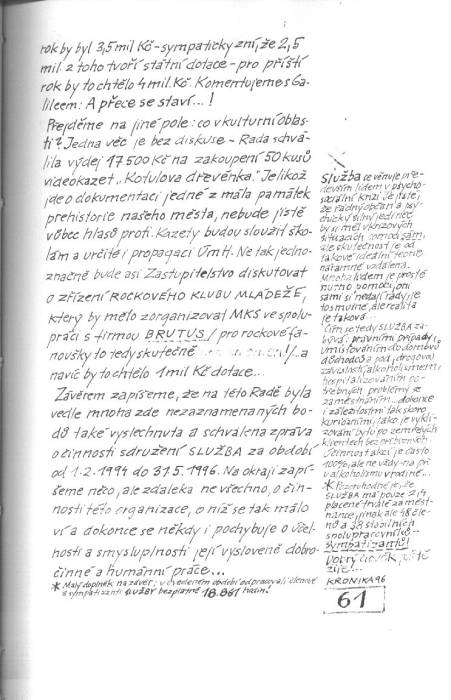 rok by byl 3,5 mil Kč - sympaticky zní, že 2,5
mil z toho tvoří státní dotace - pro příští
rok by to chtělo 4 mil. Kč. Komentujeme s Ga-
lileem: A přece se staví...!
Přejděme na jiné pole: co v kulturní oblas-
ti? Jedna věc je bez diskuse - Rada schvá-
lila výdej 17 500 Kč na zakoupení 50 kusů
videokazet „Kotulova dřevěnka." Jelikož
jde o dokumentaci jedné z mála památek
prehistorie našeho města, nebude jistě
vůbec hlasů proti. Kazety budou sloužit ško-
lám a určitě i propagaci ÚmH. Ne tak jedno-
značně bude asi Zastupitelstvo diskutovat
o zřízení ROCKOVÉHO KLUBU MLÁDEŽE,
který by mělo zorganizovat MKS ve spolu-
práci s firmou BRUTUS / pro rockové fa-
noušky to tedy skutečně /..a
navíc by to chtělo 1 mil Kč dotace...
Závěrem zapišme, že na této Radě byla
vedle mnoha zde nezaznamenaných bo-
dů také vyslechnuta a schválena zpráva
o činnosti sdružení SLUŽBA za období
od 1.2.1994 do 31.5.1996. Na okraji zapí-
šeme něco, ale zdaleka ne všechno, o čin-
nosti této organizace, o níž se tak málo
ví a dokonce se někdy i pochybuje o účel-
nosti a smysluplnosti její vysloveně dobro-
činné a humánní práce...
* Malý doplněk na závěr: v uvedeném období odpracovali členové
a sympatizanti SLUŽBY bezplatně 18.861 hodin!
SLUŽBA se věnuje pře-
devším lidem v psycho-
sociální krizi. Je jisté,
že řádný občan a psy-
chicky silný jedinec
by si měl v krizových
situacích pomoci sám,
ale skutečnost je od
takové ideální teorie
náramně vzdálena.
Mnoha lidem je prostě
nutno pomoci, oni
sami si nedají rady, je
to smutné, ale realita
je taková...
Čím se tedy SLUŽBA za-
bývá: právními případy,
umisťováním do domovů
důchodců a pod., drogovou
závislostí, alkoholismem,
hospitalizováním po-
třebných, problémy se
zaměstnáním... dokonce
i záležitostmi tak skoro
kuriózními, jako je vykli-
zování bytů po zemřelých
klientech bez příbuzných.
Účinnost akcí je často
100%, ale ne vždy - na př.
u alkoholismu v rodině...
* Pozoruhodné je, že
SLUŽBA má pouze 2
placené trvalé zaměst-
nance, jinak ale 48 čle-
nů a 38 stabilních
spolupracovníků -
sympatizantů!
Dobrý člověk ještě
žije...
KRONIKA 96
61